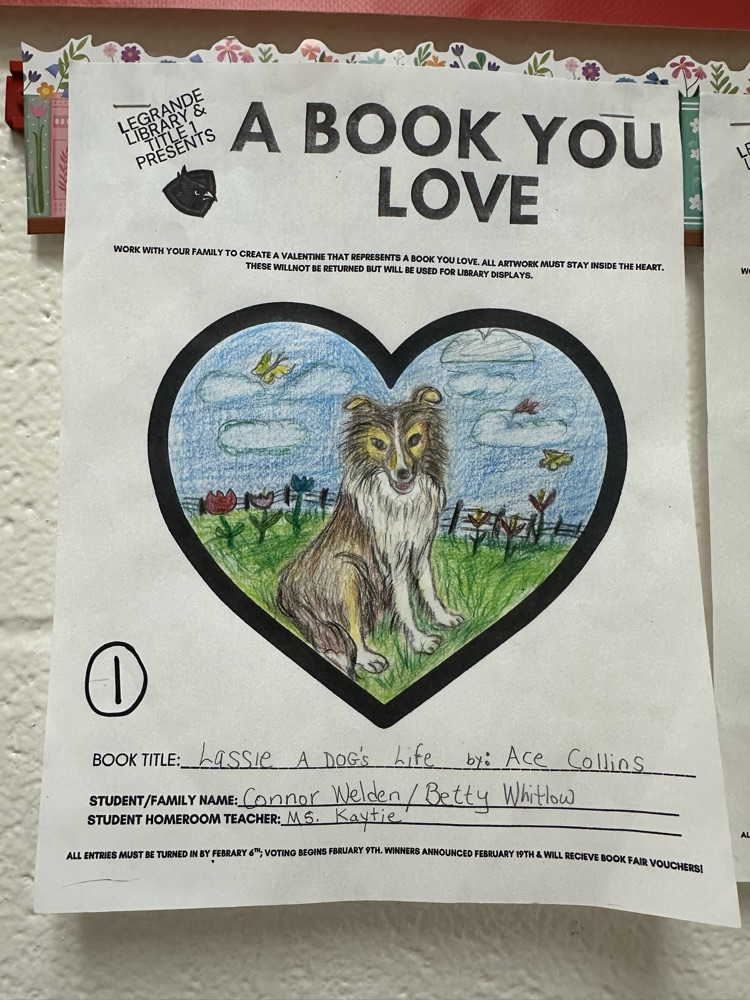 LEGRANDE
LIBRARY &
TITLE 1
PRESENTS
A BOOK YOU
LOVE
WORK WITH YOUR FAMILY TO CREATE A VALENTINE THAT REPRESENTS A BOOK YOU LOVE. ALL ARTWORK MUST STAY INSIDE THE HEART.
THESE WILLNOT BE RETURNED BUT WILL BE USED FOR LIBRARY DISPLAYS.
1
BOOK TITLE: Lassie A DOG's Life by: Ace Collins
STUDENT/FAMILY NAME: Connor Welden / Betty Whitlow
STUDENT HOMEROOM TEACHER: Ms. Kaytie
ALL ENTRIES MUST BE TURNED IN BY FEBRARY 6TH; VOTING BEGINS FBRUARY 9TH. WINNERS ANNOUNCED FEBRUARY 19TH & WILL RECIEVE BOOK FAIR VOUCHERS!